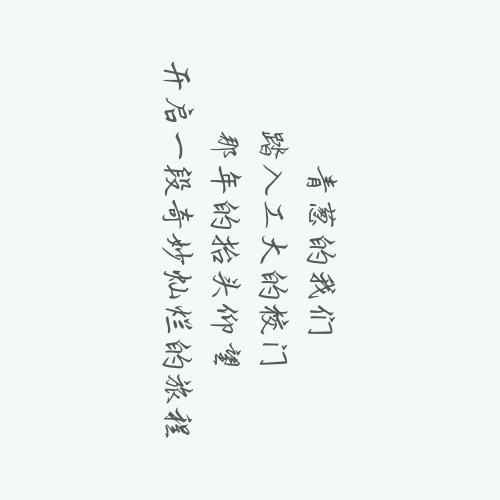 青葱的我们
踏入工大的校门
那年的抬头仰望
开启一段奇妙灿烂的旅程